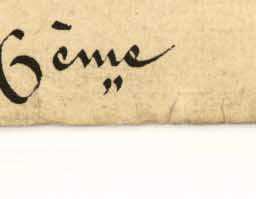 6ème
"